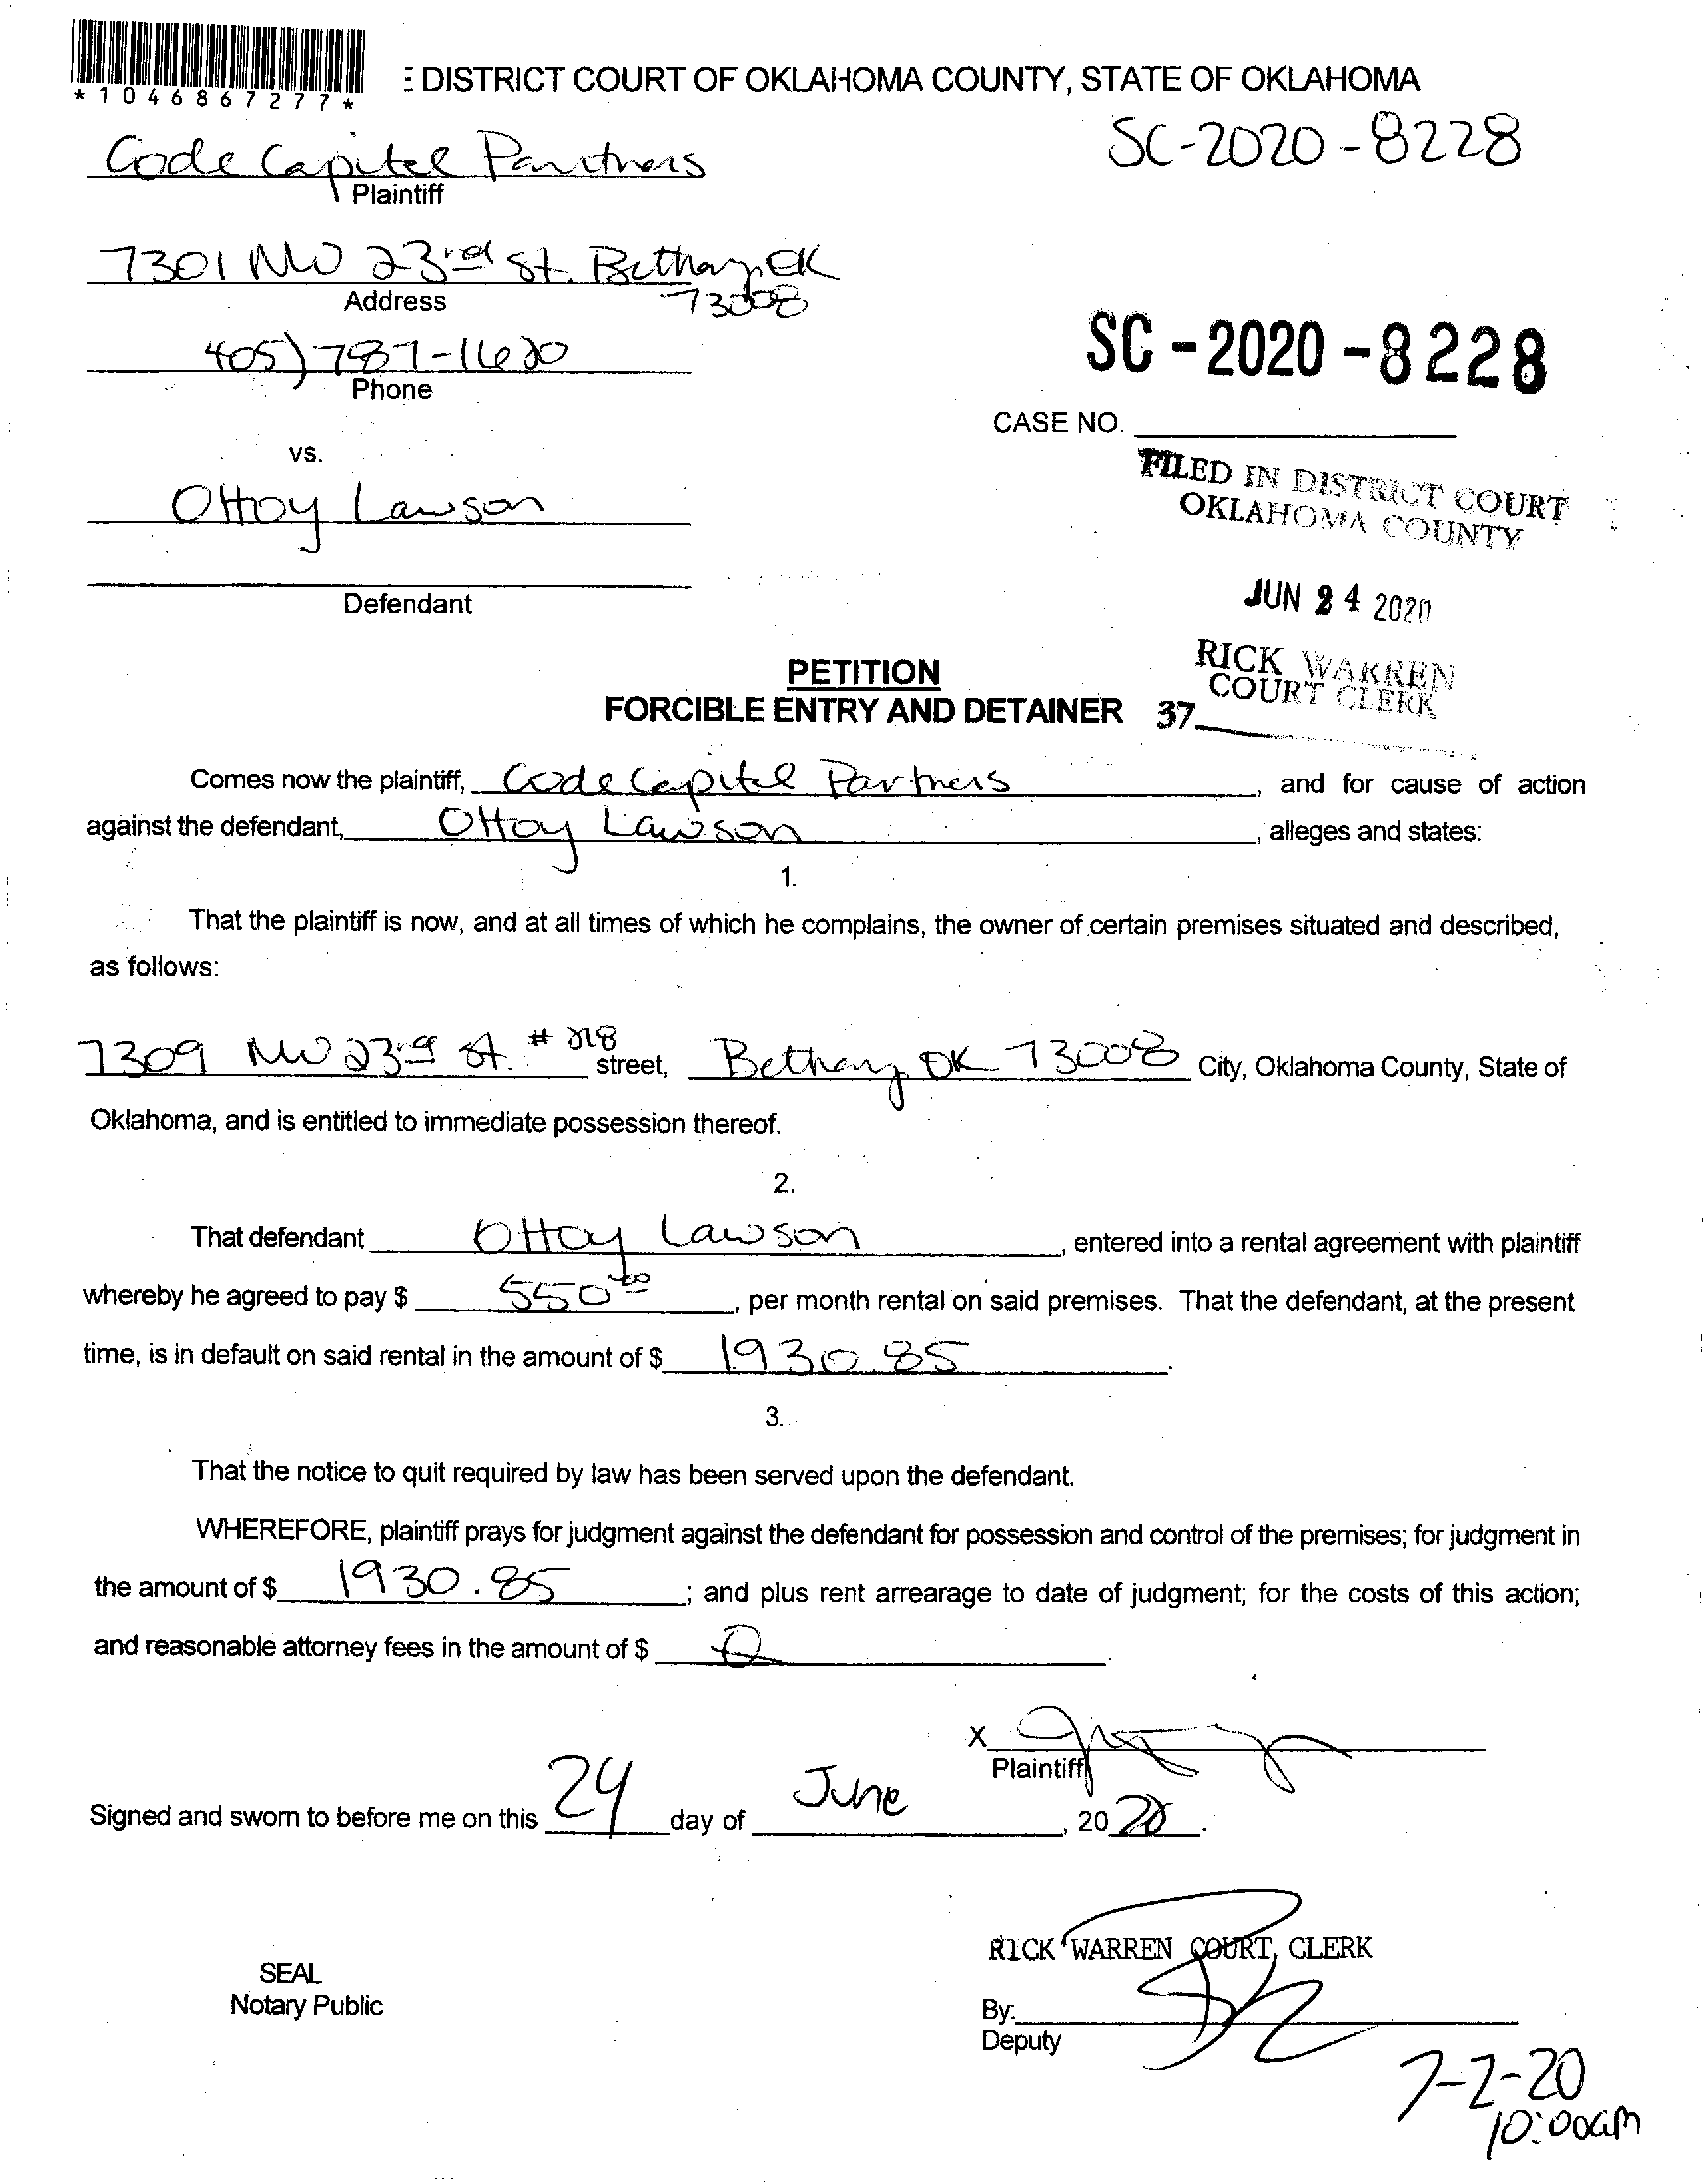 *1046867277*
E DISTRICT COURT OF OKLAHOMA COUNTY, STATE OF OKLAHOMA
Code Capital Partners
SC-2020-8228
Plaintiff
7301 NW 23rd St. Bethany OK
73008
Address
405) 787-1620
Phone
SC-2020-8228
CASE NO.
vs.
FILED IN DISTRICT COURT
OKLAHOMA COUNTY
Ottoy Lawson
Defendant
JUN 24 2020
RICK WARREN
COURT CLERK
37
PETITION
FORCIBLE ENTRY AND DETAINER
Comes now the plaintiff, Code Capital Partners, and for cause of action
against the defendant, Ottoy Lawson, alleges and states:
1.
That the plaintiff is now, and at all times of which he complains, the owner of certain premises situated and described,
as follows:
7309 NW 23rd St. # 218 street, Bethany OK 73008 City, Oklahoma County, State of
Oklahoma, and is entitled to immediate possession thereof.
2.
That defendant Ottoy Lawson, entered into a rental agreement with plaintiff
whereby he agreed to pay $ 550.00, per month rental on said premises. That the defendant, at the present
time, is in default on said rental in the amount of $ 1930.85.
3.
That the notice to quit required by law has been served upon the defendant.
WHEREFORE, plaintiff prays for judgment against the defendant for possession and control of the premises; for judgment in
the amount of $ 1930.85; and plus rent arrearage to date of judgment; for the costs of this action;
and reasonable attorney fees in the amount of $ 0
X
Plaintiff
Signed and sworn to before me on this 24 day of June, 2020.
RICK WARREN COURT CLERK
SEAL
Notary Public
By:
Deputy
7-2-20
10:00am